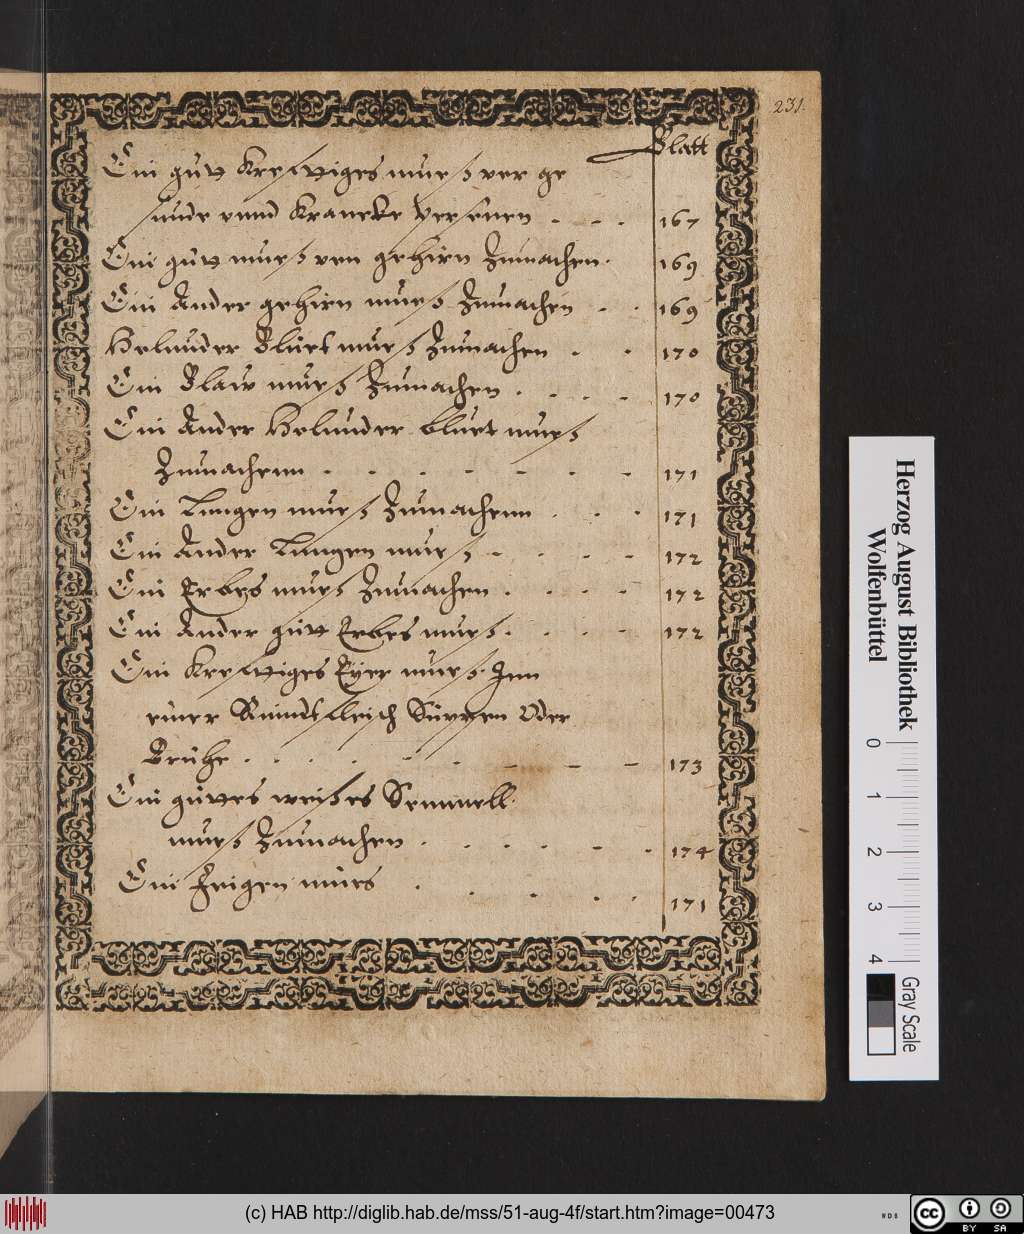 231.
Blatt
Ein gutt Krefftiges mueß vor ge
sunde unnd Krancke Personen . . . . 167
Ein gutt mueß von gehirn Zumachen . 169
Ein Ander gehirn mueß Zumachen . . 169
Holunder Bluet mueß Zumachen . . 170
Ein Blaw mueß Zumachen . . . . 170
Ein Ander Holunder bluet mueß
Zumachenn . . . . . . . 171
Ein Lungen mueß Zumachenn . . . 171
Ein Ander Lungen mueß . . . . 172
Ein Erbes mueß Zumachen . . . . 172
Ein Ander gutt Erbes mueß . . . . 172
Ein Krefftiges Eyer mueß Inn
einer Rindtfleisch Suppen Oder
Bruhe . . . . . . . . . 173
Ein guttes weißes Semmell
mueß Zumachen . . . . . . 174
Ein Feigen mues . . . . . 171
Herzog August Bibliothek
Wolfenbüttel
0 1 2 3 4
Gray Scale
(c) HAB http://diglib.hab.de/mss/51-aug-4f/start.htm?image=00473
WDB
cc BY SA